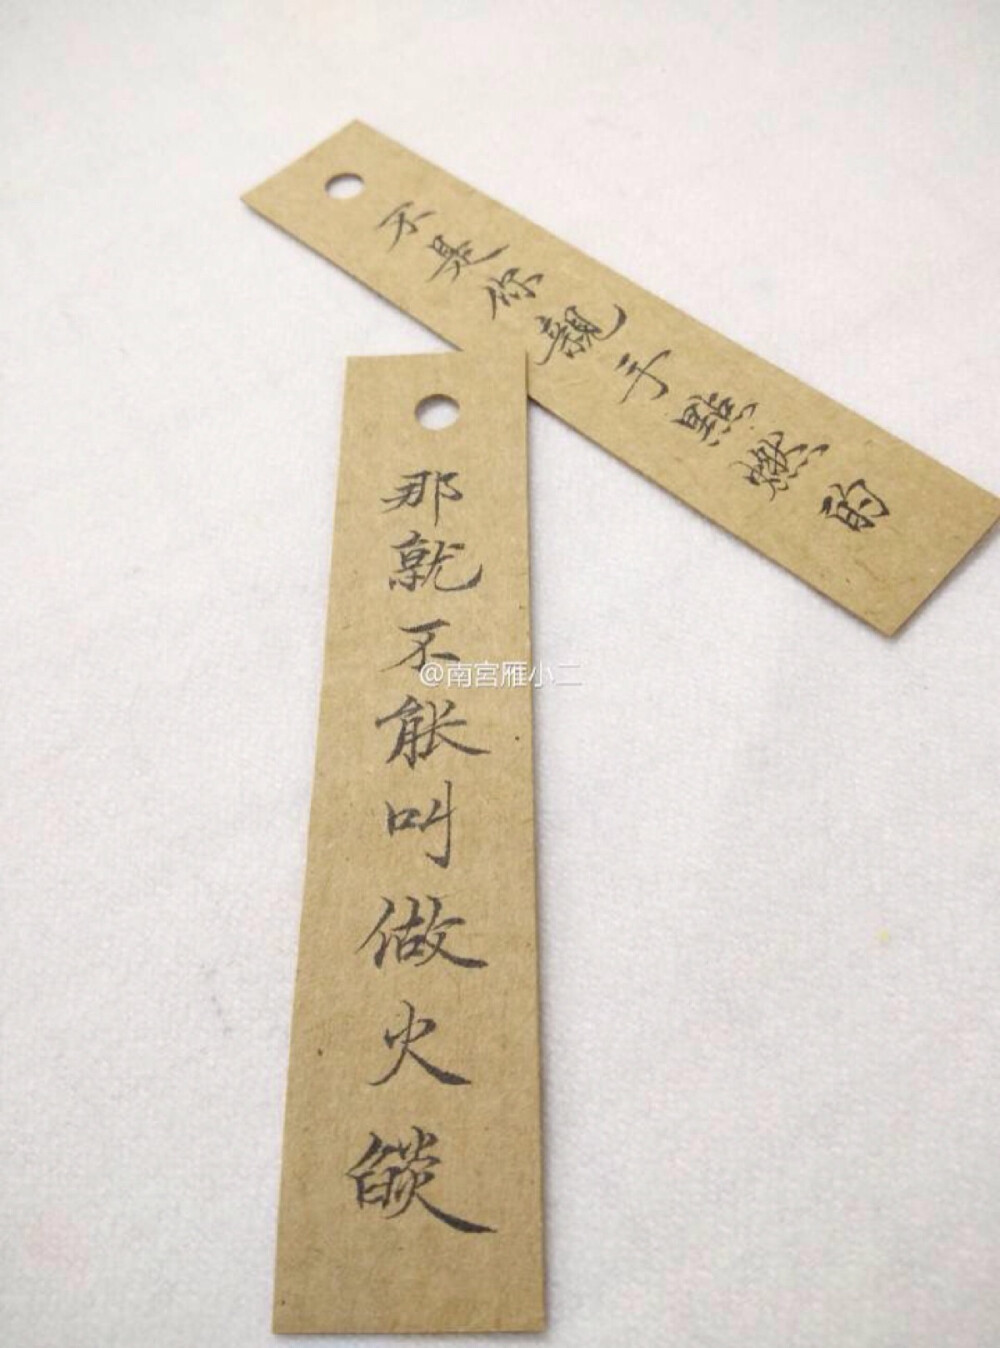 不是你親手點燃的
那就不能叫做火燄
@南宮雁小二